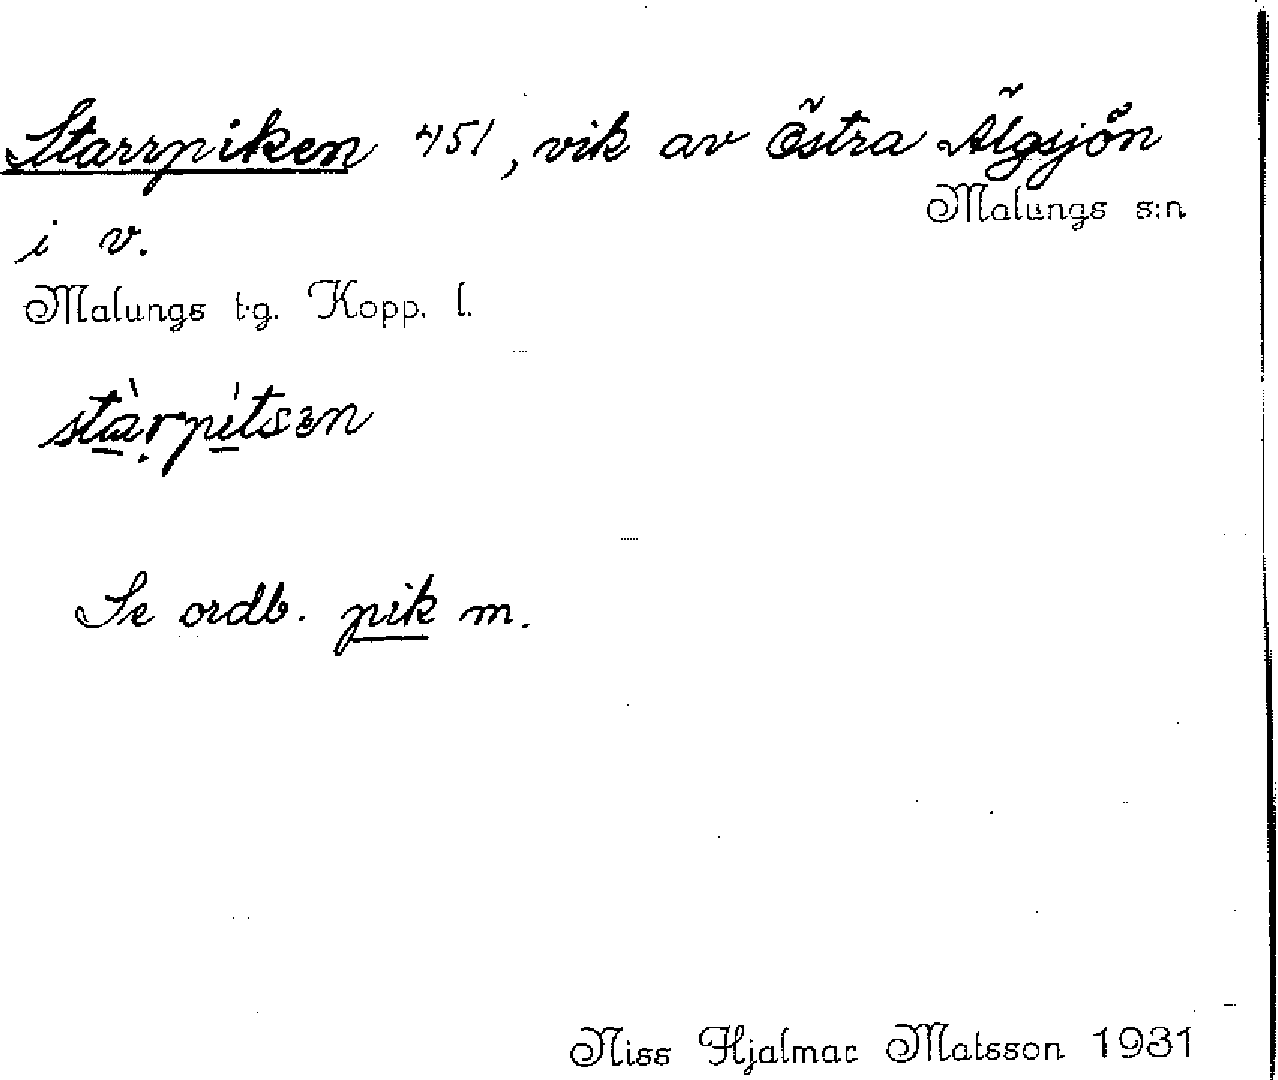 Starrpiken 451, vik av Östra Älgsjön
Malungs s:n
i v.
Malungs t.g. Kopp. l.
stàrpítsən
Se ordb. pik m.
Niss Hjalmar Matsson 1931